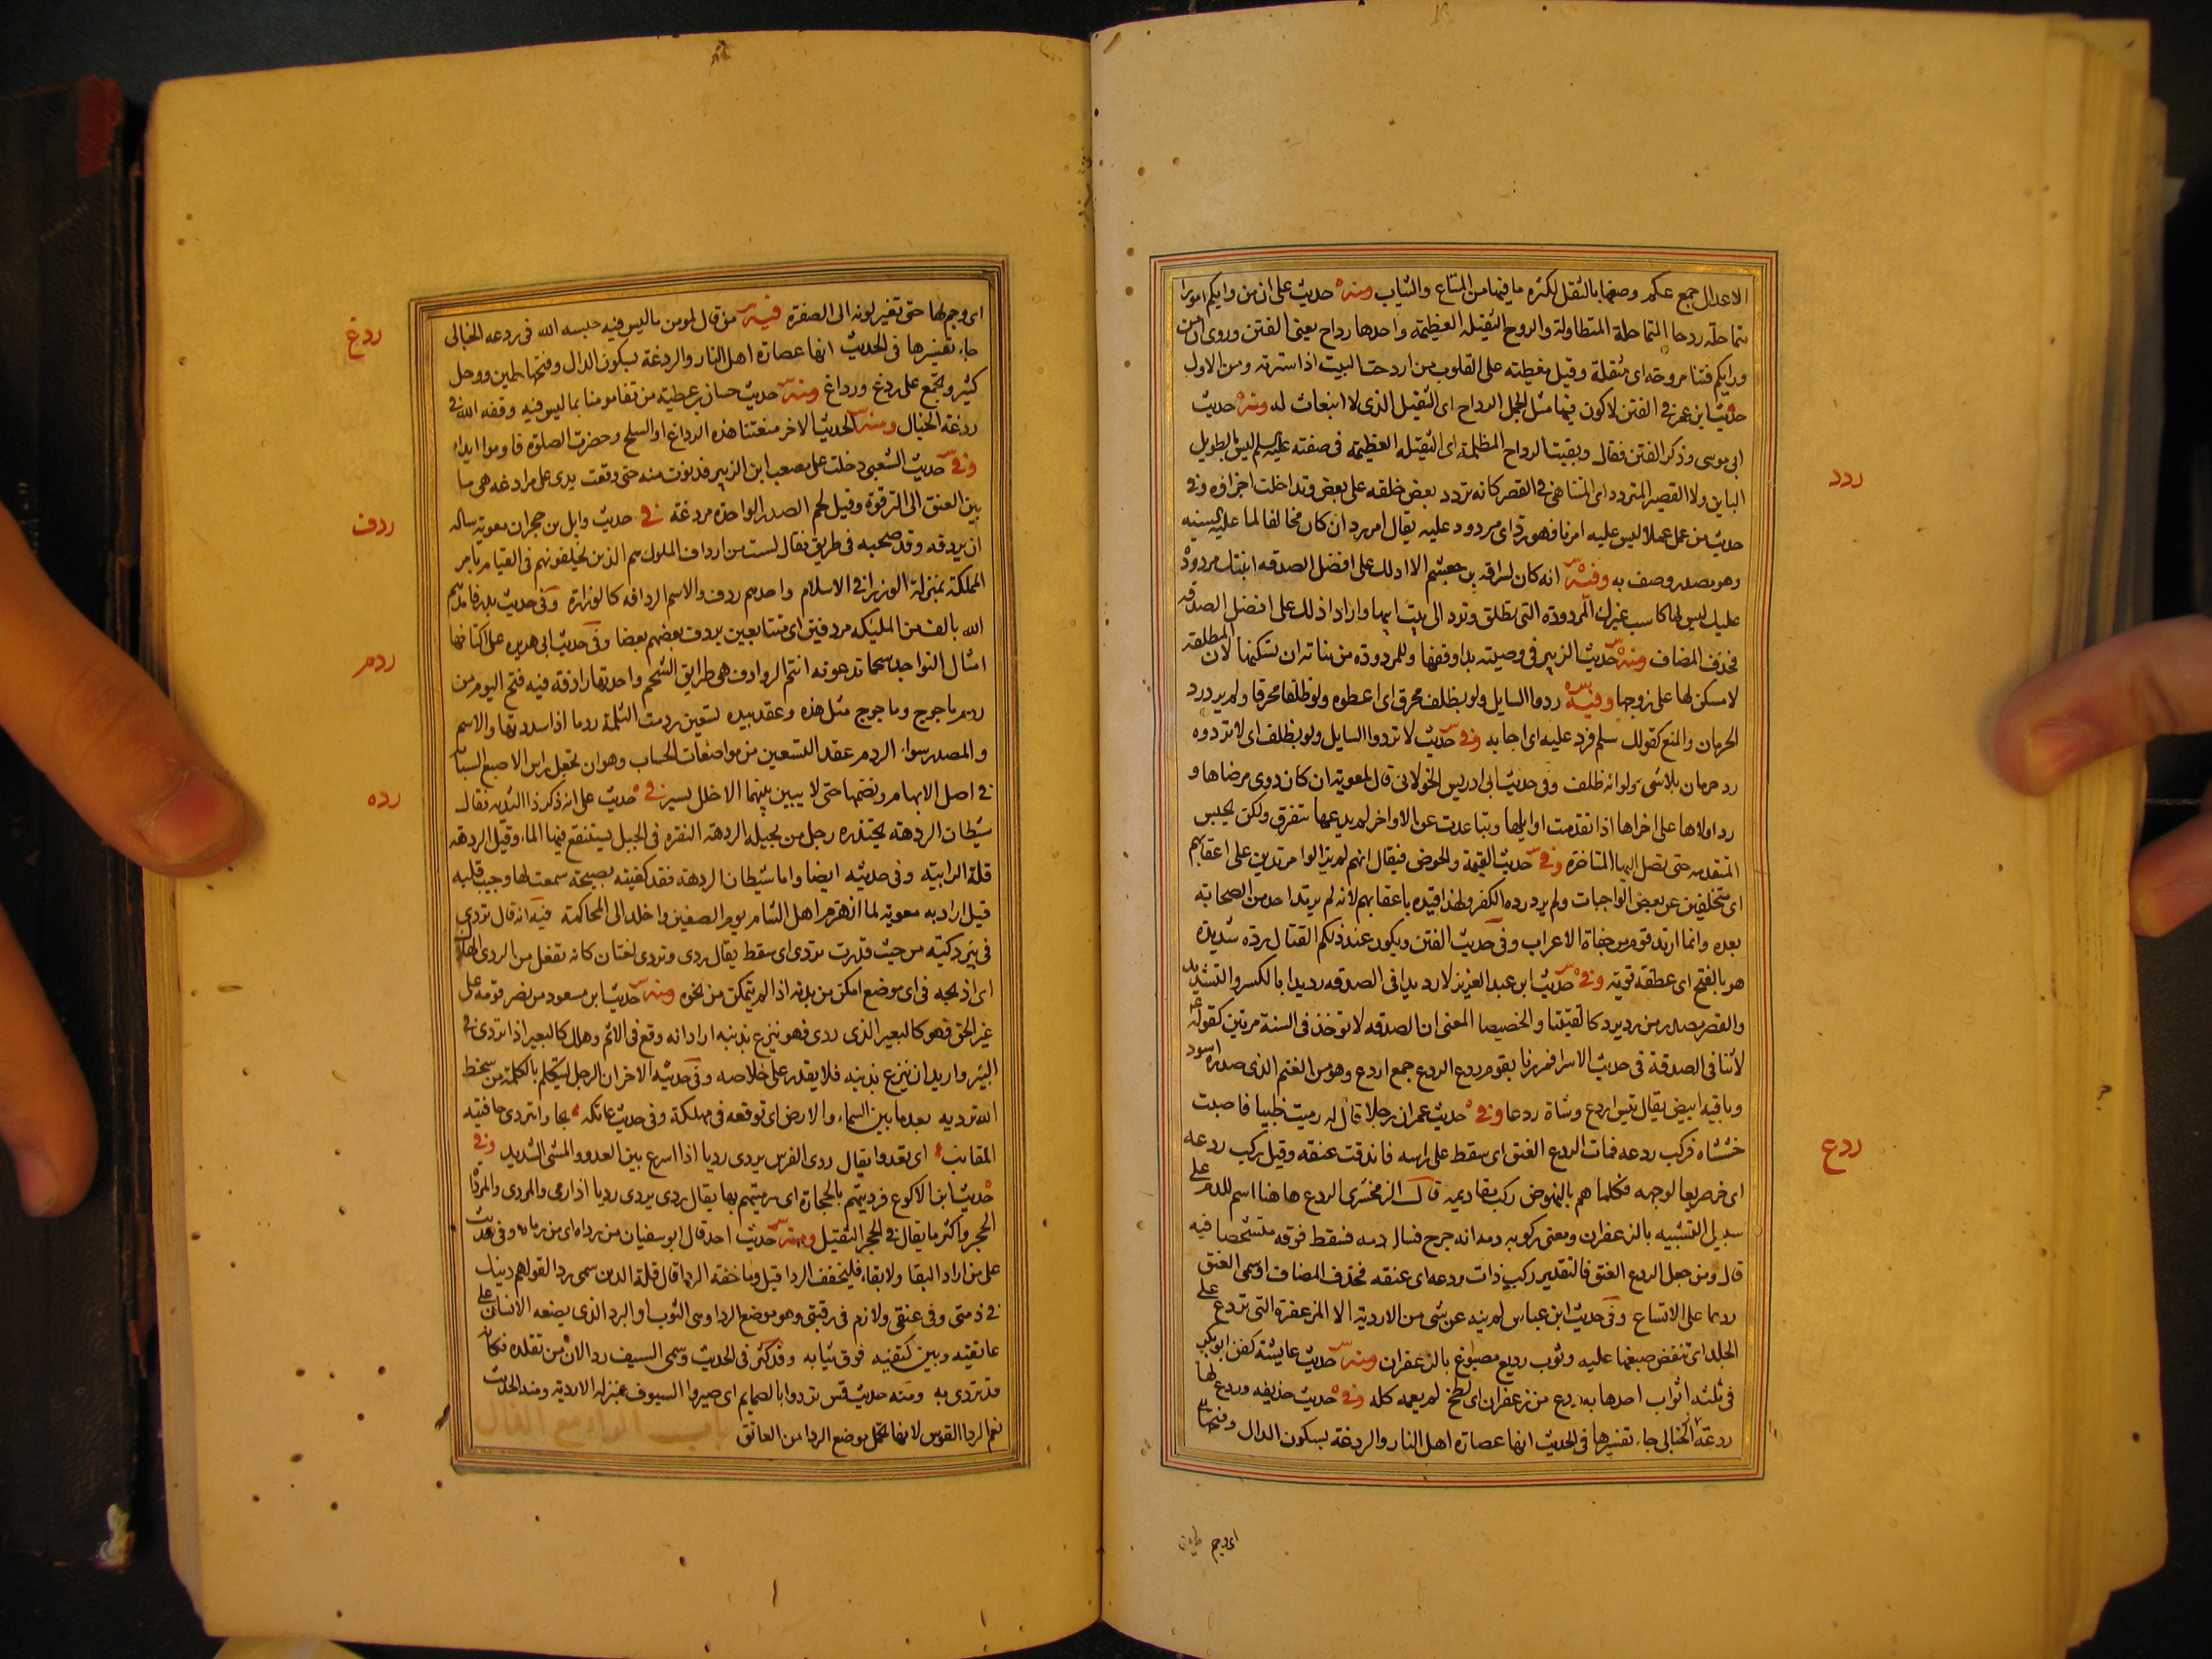 الاعدال جمع عكم وصفها بالثقل لكثرة ما فيها من المتاع والثياب ومنه حديث على ان من ورايكم امورا
متماحلة ردحا المتماحلة المتطاولة والردح الثقيلة العظيمة واحدها رداح يعنى الفتن وروى ان من
ورايكم فتنا مردحة اى مثقلة وقيل مغطية على القلوب من اردحت البيت اذا سترته ومن الاول
حديث ابن عمر فى الفتن لاكون فيها مثل الجمل الرداح اى الثقيل الذى لا انبعاث له ومنه حديث
ابى موسى وذكر الفتن فقال وبقيت الرداح المظلمة اى الثقيلة العظيمة فى صفته عليه السلم ليس بالطويل
ردد
الباين ولا القصير المتردد اى المتناهى فى القصر كانه تردد بعض خلقه على بعض وتداخلت اجزاؤه وفى
حديث من عمل عملا ليس عليه امرنا فهو رد اى مردود عليه يقال امر رد ان كان مخالفا لما عليه السنه
وهو مصدر وصف به وفيه انه كان لسراقه بن جعشم الا ادلك على افضل الصدقه ابنتك مردودة
عليك ليس لها كاسب غيرك المردودة التى تطلق وترد الى بيت ابيها واراد اذلك على افضل الصدقه
فحذف المضاف ومنه حديث الزبير فى وصيته بدار وقفها وللمردوده من بناته ان تسكنها لان المطلقه
لا مسكن لها على زوجها وفيه ردوا السايل ولو بظلف محرق اى اعطوه ولو ظلفا محرقا ولم يرد رد
الحرمان والمنع كقولك سلم فرد عليه اى اجابه وفى حديث لا تردوا السايل ولو بظلف اى لا تردوه
رد حرمان بلا شى ولو انه ظلف وفى حديث ابى ادريس الخولانى قال لمعوية ان كان دوى مرضاها و
رد اولاها على اخراها اذا تقدمت اوايلها وتباعدت عن الاواخر لم يدعها تتفرق ولكن يحبس
المتقدمه حتى تصل اليها المتاخرة وفى حديث القيمة والحوض فيقال انهم لم يزالوا مرتدين على اعقابهم
اى متخلفين عن بعض الواجبات ولم يرد رده الكفر ولهذا قيده باعقابهم لانه لم يرتد احد من الصحابه
بعده وانما ارتد قوم من جفاة الاعراب وفى حديث الفتن ويكون عند ذلكم القتال ردة شديدة
هو بالفتح اى عطفة قوية وفى حديث ابن عبد العزيز لا رديدا فى الصدقه رديدا بالكسر والتشديد
والقصر مصدر من رد يرد كالقتيتا والخصيصا المعنى ان الصدقه لا توخذ فى السنة مرتين كقوله
لا ثنا فى الصدقة فى حديث الاسرا فمررنا بقوم ردع الردع جمع اردع وهو من الغنم الذى صدره اسود
وباقيه ابيض يقال تيس اردع وشاة ردعا وفى حديث عمر ان رجلا قال له رميت ظبيا فاصبت
ردع
خششاه فركب ردعه فمات الردع العنق اى سقط على راسه فاندقت عنقه وقيل ركب ردعه
اى خر صريعا لوجهه فكلما هم بالنهوض ركب مقاديمه قال الزمخشرى الردع هاهنا اسم للدم على
سبيل التشبيه بالزعفران ومعنى ركوبه دمه انه جرح فسال دمه فسقط فوقه متشحطا فيه
قال ومن جعل الردع العنق فالتقدير ركب ذات ردعه اى عنقه فحذف المضاف او سمى العنق
ردعا على الاتساع وفى حديث ابن عباس لم ينه عن شى من الاردية الا المزعفرة التى تردع على
الجلد اى تنفض صبغها عليه وثوب رديع مصبوغ بالزعفران ومنه حديث عايشة كفن ابو بكر
فى ثلثه اثواب احدها به ردع من زعفران اى لطخ لم يعمه كله وفى حديث حذيفه وردع لها
ردغة الخبالى جاء تفسيرها فى الحديث انها عصارة اهل النار والردغة بسكون الدال وفتحها
اى وجم
اى وجم لها حتى تغير لونه الى الصفرة فيه من قال لمومن ما ليس فيه حبسه الله فى ردغه الخبالى
ردغ
جاء تفسيرها فى الحديث انها عصارة اهل النار والردغة بسكون الدال وفتحها طين ووحل
كثير ويجمع على ردغ ورداغ ومنه حديث حسان بن عطية من قفا مومنا بما ليس فيه وقفه الله فى
ردغة الخبال ومنه الحديث الاخر منعتنا هذه الرداغ او السلح وحضرت الصلوة فاوموا ايماء
وفى حديث الشعبى دخلت على مصعب ابن الزبير فدنوت منه حتى وقعت يدى على مرادغه هى ما
بين العنق الى الترقوة وقيل لحم الصدر الواحدة مردغة فى حديث وايل بن حجر ان معوية ساله
ردف
ان يردفه وقد صحبه فى طريق فقال لست من ارداف الملوك هم الذين يخلفونهم فى القيام بامر
المملكة بمنزلة الوزرا فى الاسلام واحدهم ردف والاسم الردافه كالوزارة وفى حديث بدر فامدهم
الله بالف من المليكه مردفين اى متتابعين يردف بعضهم بعضا وفى حديث ابى هريره على اكتافها
امثال النواجد شحما تدعونه انتم الروادف هى طرايق الشحم واحدتها رادفة فيه فتح اليوم من
ردم
ردم ياجوج وماجوج مثل هذه وعقد بيده تسعين ردمت الثلمة ردما اذا سددتها والاسم
والمصدر سواء الردم عقد التسعين من مواضعات الحساب وهو ان تجعل راس الاصبع السبابة
فى اصل الابهام وتضمها حتى لا يبين بينهما الا خلل يسير فى حديث على انه ذكر ذا الثديه فقال
رده
شيطان الردهة يحتذره رجل من بجيله الردهة النقره فى الجبل يستنقع فيها الماء وقيل الردهة
قلة الرابية وفى حديثه ايضا واما شيطان الردهة فقد كفيته بصيحة سمعت لها وجيب قلبه
قيل اراد به معوية لما انهزم اهل الشام يوم الصفين واخلد الى المحاكمة فيه انه قال تردى
فى بير ذكيته من حيث قدرت تردى اى سقط يقال ردى وتردى لغتان كانه تفعل من الردى الهلاك
اى اذبحه فى اى موضع امكن من بدنه اذا لم يتمكن من نحره ومنه حديث ابن مسعود من نصر قومه على
غير الحق فهو كالبعير الذى ردى فهو ينزع بذنبه اراد انه وقع فى الاثم وهلك كالبعير اذا تردى فى
البير واريد ان ينزع بذنبه فلا يقدر على خلاصه وفى حديثه الاخر ان الرجل ليتكلم بالكلمة من سخط
الله ترديه بعد ما بين السماء والارض اى توقعه فى مهلكة وفى حديث عاتكه بجاوا تردى حافتيه
المقانب اى تعدوا يقال ردى الفرس يردى رديا اذا اسرع بين العدو والمشى الشديد وفى
حديث ابن الاكوع فرديتهم بالحجارة اى رميتهم بها يقال ردى يردى رديا اذا رمى والمردى والمرداة
الحجر واكثر ما يقال فى الحجر الثقيل ومنه حديث احد قال ابو سفيان من رداه اى من رماه وفى حديث
على من اراد البقا ولا بقاء فليخفف الردا قيل وما خفة الردا قال قلة الدين سمى ردا لقولهم دينك
فى ذمتى وفى عنقى ولازم فى رقبتى وهو موضع الردا وهى الثوب او البرد الذى يضعه الانسان على
عاتقيه وبين كتفيه فوق ثيابه وقد كثر فى الحديث وسمى السيف ردا لان من تقلده فكانه
قد تردى به ومنه حديث قس تردوا بالصمايم اى صيروا السيوف بمنزلة الاردية ومنه الحديث
نعم الردا القوس لانها تحمل موضع الردا من العاتق